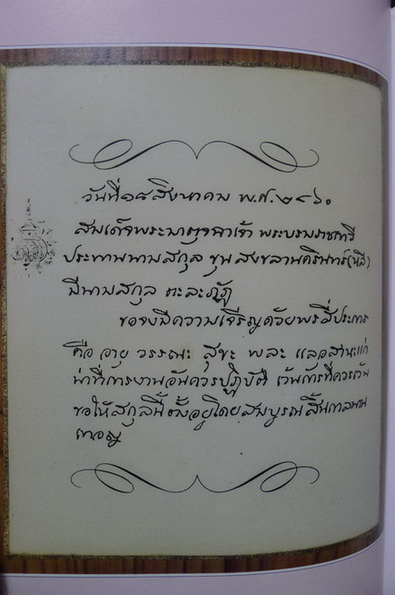 วันที่ ๑๘ สิงหาคม พ.ศ. ๒๔๖๐
สมเด็จพระมาตุจฉาเจ้า พระบรมราชเทวี
ประทานนามสกุล ขุน สงขลานครินทร์
มีนามสกุล ตะละภัฏ
ขอจงมีความเจริญด้วยพรสี่ประการ
คือ อายุ วรรณะ สุขะ พละ แลอุสาหะแก่
น่าที่การงานอันควรปฏิบัติ เว้นการที่ควรเว้น
ขอให้สกุลนี้ตั้งอยู่โดยสมบูรณ์สิ้นกาลนาน
เทอญ